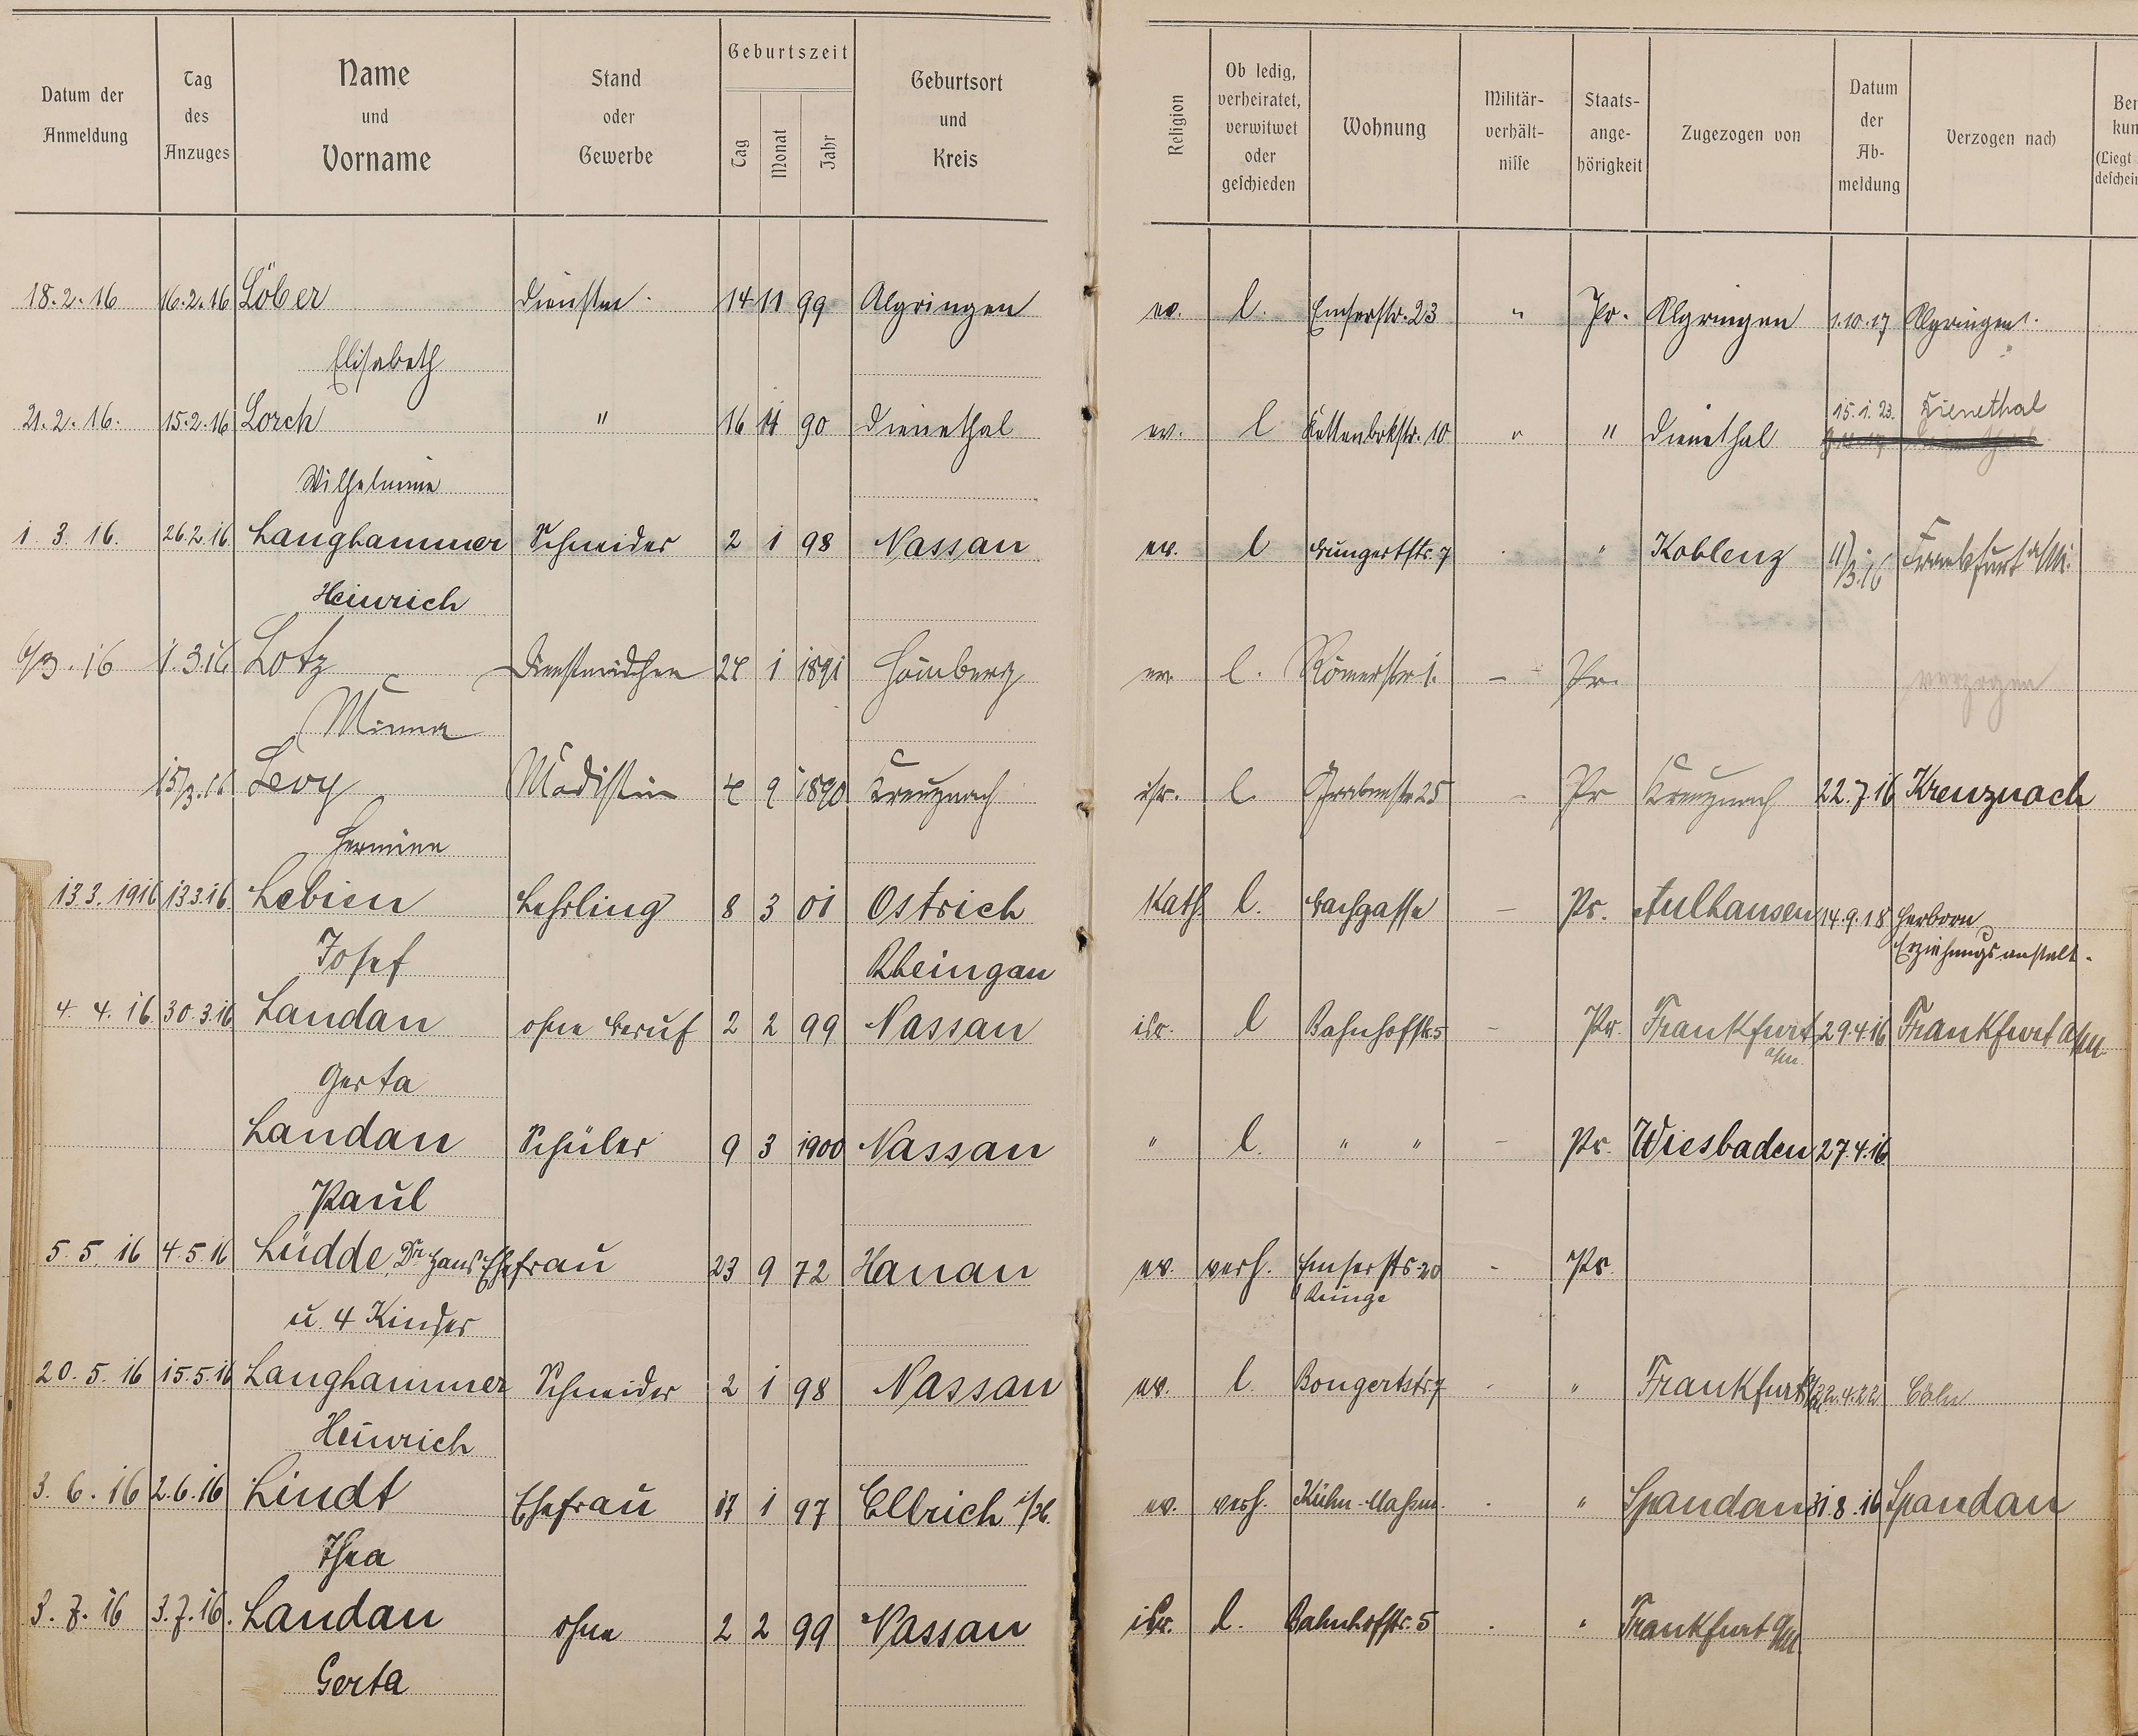 Datum der Anmeldung | Tag des Anzuges | Name und Vorname | Stand oder Gewerbe | Geburtszeit Tag Monat Jahr | Geburtsort und Kreis | Religion | Ob ledig, verheiratet, verwitwet oder geschieden | Wohnung | Militär-verhält-nisse | Staats-ange-hörigkeit | Zugezogen von | Datum der Ab-meldung | Verzogen nach
18.2.16 16.2.16 Löber 14 11 99 Algringen ev. l. Emserstr. 23 " Pr. Algringen 1.10.17 Algringen
Elisabeth
21.2.16. 15.2.16 Lorch " 16 11 90 Dienethal ev. l " " Dienethal 15.1.23. Dienethal
Wilhelmine
1. 3. 16. 26.2.16 Langhammer Schneider 2 1 98 Nassau ev. l Bungertstr. 7 " Koblenz 11/3.16 Frankfurt a/M.
Heinrich
6/3.16 1.3.16 Lotz Dienstmädchen 24 1 1891 ev. l. Römerstr 1. – Pr. verzogen
Minna
15/3.16 Levy Modistin 4 9 1890 Kreuznach isr. l. Grabenstr 25 – Pr Kreuznach 22.7.16 Kreuznach
Hermine
13.3.1916 13.3.16. Lebien Lehrling 8 3 01 Östrich Kath. l. Bachgasse – Pr. Aulhausen 14.9.18 Herborn
Josef Rheingau Erziehungsanstalt.
4. 4. 16. 30.3.16 Landau ohne Beruf 2 2 99 Nassau isr. l Bahnhofstr 5 – Pr. Frankfurt a/m. 29.4.16 Frankfurt a/M
Gerta
Landau Schüler 9 3 1900 Nassau " l. " " – Pr. Wiesbaden 27.4.16
Paul
5. 5. 16 4.5.16 Lüdde, Dr Hans Ehefrau 23 9 72 Hanau ev. verh. Emserstr 20 – Pr.
u. 4 Kinder b Runge
20. 5. 16 15.5.16 Langhammer Schneider 2 1 98 Nassau ev. l. Bongertstr 7 " Frankfurt a/M 22.4.22 Cöln
Heinrich
3. 6. 16 2.6.16 Lindt Ehefrau 17 1 97 Ellrich i/H. ev. verh. " Spandau 31.8.16 Spandau
Thea
3. 7. 16 3.7.16. Landau ohne 2 2 99 Nassau isr. l. Bahnhofstr. 5 " Frankfurt a/M.
Gerta